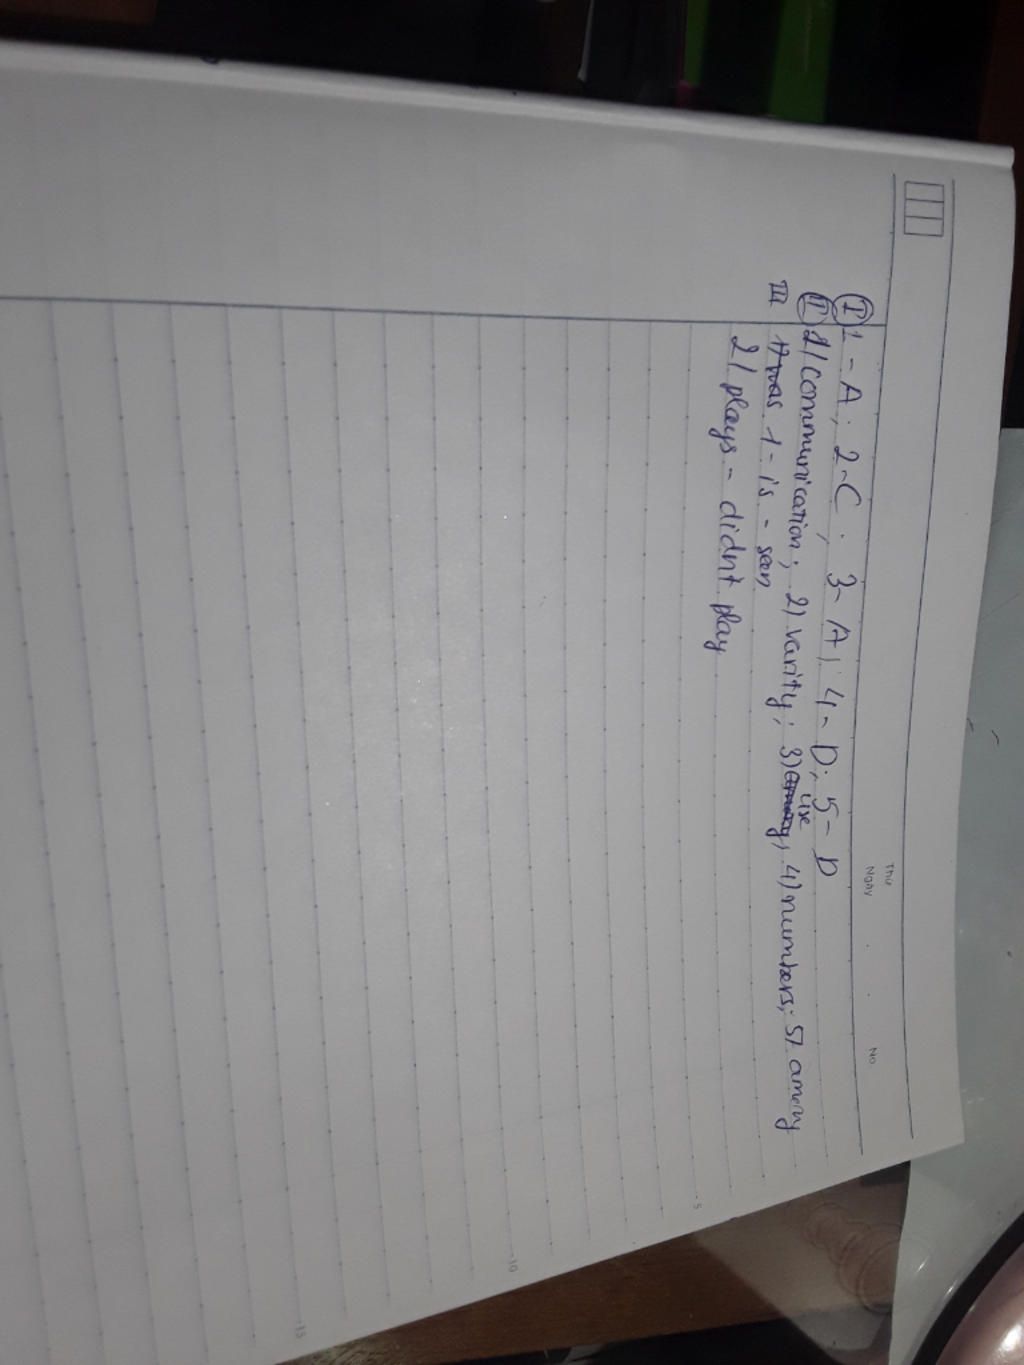 Thứ
Ngày . . No.
I 1 - A; 2 - C; 3 - A; 4 - D; 5 - D
II 1/ communication; 2) varity; 3) use, 4) numbers; 5/ amery
III 1) was 1 - is - seen
2/ plays - didn't play
5
10
15